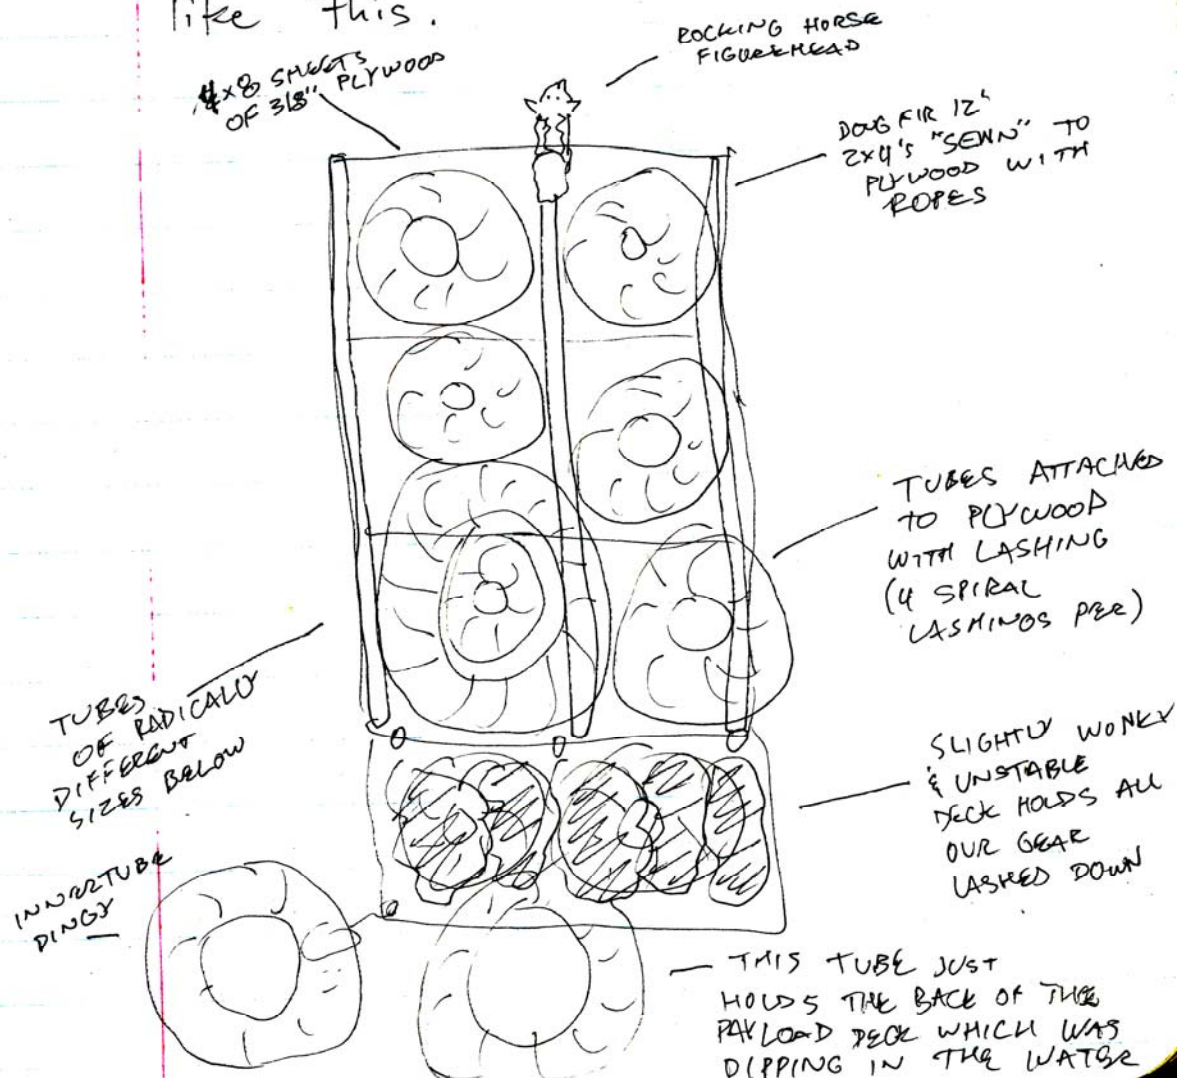 like this.
ROCKING HORSE
FIGUREHEAD
4x8 SHEETS
OF 3/8" PLYWOOD
DOUG FIR 12'
2x4's "SEWN" TO
PLYWOOD WITH
ROPES
TUBES ATTACHED
TO PLYWOOD
WITH LASHING
(4 SPIRAL
LASHINGS PER)
TUBES
OF RADICALY
DIFFERENT
SIZES BELOW
SLIGHTLY WONKY
& UNSTABLE
DECK HOLDS ALL
OUR GEAR
LASHED DOWN
INNERTUBE
DINGY
THIS TUBE JUST
HOLDS THE BACK OF THE
PAYLOAD DECK WHICH WAS
DIPPING IN THE WATER